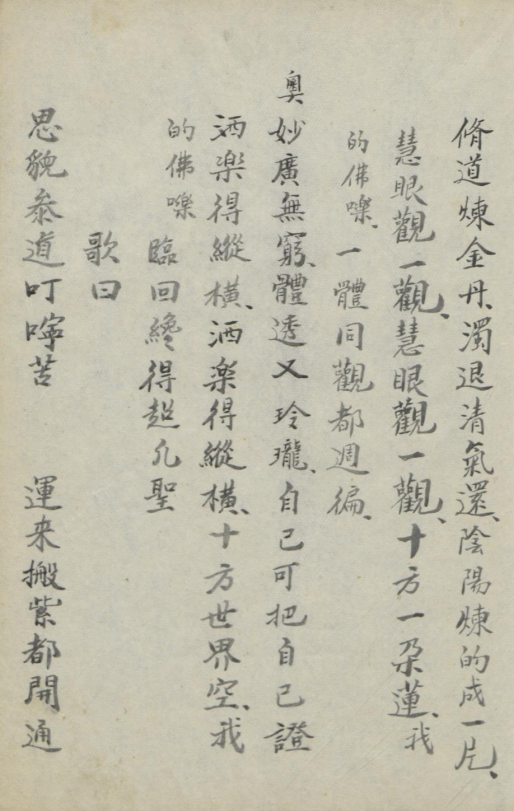 脩道煉金丹、濁退清氣還、陰陽煉的成一片、
慧眼觀一觀、慧眼觀一觀、十方一朶蓮、我
的佛嚛、一體同觀都週徧、
奥妙廣無窮、體透又玲瓏、自己可把自己證
洒楽得縱橫、洒楽得縱橫、十方世界空、我
的佛嚛臨回纔得超凢聖
歌曰
思貌叅道叮嚀苦 運来搬紫都開通